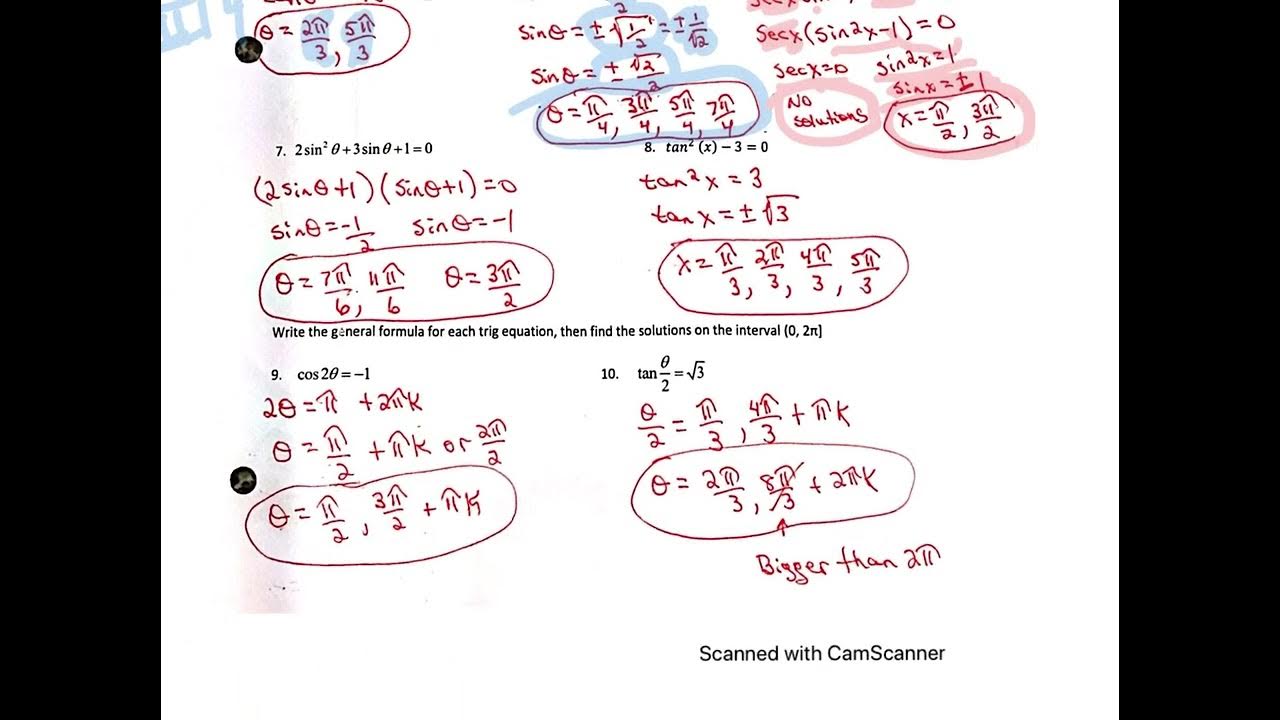 θ = 2π/3, 5π/3
sinθ = ± √1/2 = ± 1/√2
sinθ = ± √2/2
θ = π/4, 3π/4, 5π/4, 7π/4
secx(sin²x-1) = 0
secx=0 sin²x=1
sinx = ± 1
No solutions
x = π/2, 3π/2
7. 2sin² θ+3sin θ+1=0
(2sinθ+1)(sinθ+1)=0
sinθ=-1/2 sinθ=-1
θ = 7π/6, 11π/6 θ = 3π/2
8. tan² (x) − 3 = 0
tan²x = 3
tanx = ± √3
x = π/3, 2π/3, 4π/3, 5π/3
Write the general formula for each trig equation, then find the solutions on the interval (0, 2π]
9. cos 2θ = −1
2θ = π + 2πK
θ = π/2 + πK or 2π/2
θ = π/2, 3π/2 + πK
10. tan θ/2 = √3
θ/2 = π/3, 4π/3 + πK
θ = 2π/3, 8π/3 + 2πK
Bigger than 2π
Scanned with CamScanner